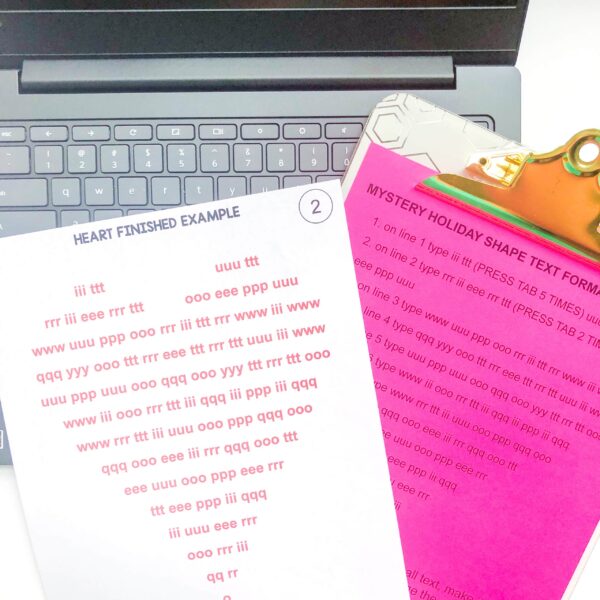 HEART FINISHED EXAMPLE
2
iii ttt uuu ttt
rrr iii eee rrr ttt ooo eee ppp uuu
www uuu ppp ooo rrr iii ttt rrr www iii www
qqq yyy ooo ttt rrr eee ttt rrr ttt uuu iii www
uuu ppp uuu ooo qqq ooo yyy ttt rrr ttt ooo
www iii ooo rrr ttt iii qqq iii ppp iii qqq
www rrr ttt iii uuu ooo ppp qqq ooo
qqq ooo eee iii rrr qqq ooo ttt
eee uuu ooo ppp eee rrr
ttt eee ppp iii qqq
iii uuu eee rrr
ooo rrr iii
qq rr
MYSTERY HOLIDAY SHAPE TEXT
1. on line 1 type iii ttt (PRESS TAB 5 TIMES)
2. on line 2 type rrr iii eee rrr ttt (PRESS TAB 2
eee ppp uuu
on line 3 type www uuu ppp ooo rrr iii ttt rrr www iii
line 4 type qqq yyy ooo ttt rrr eee ttt rrr ttt uuu iii
5 type uuu ppp uuu ooo qqq ooo yyy ttt rrr ttt
type www iii ooo rrr ttt iii qqq iii ppp iii qqq
www rrr ttt iii uuu ooo ppp qqq ooo
qqq ooo eee iii rrr qqq ooo ttt
eee uuu ooo ppp eee rrr
ttt eee ppp iii qqq
eee rrr
all text, make
esc
1 2 3 4 5 6 7 8 9 0
q w e r t y u